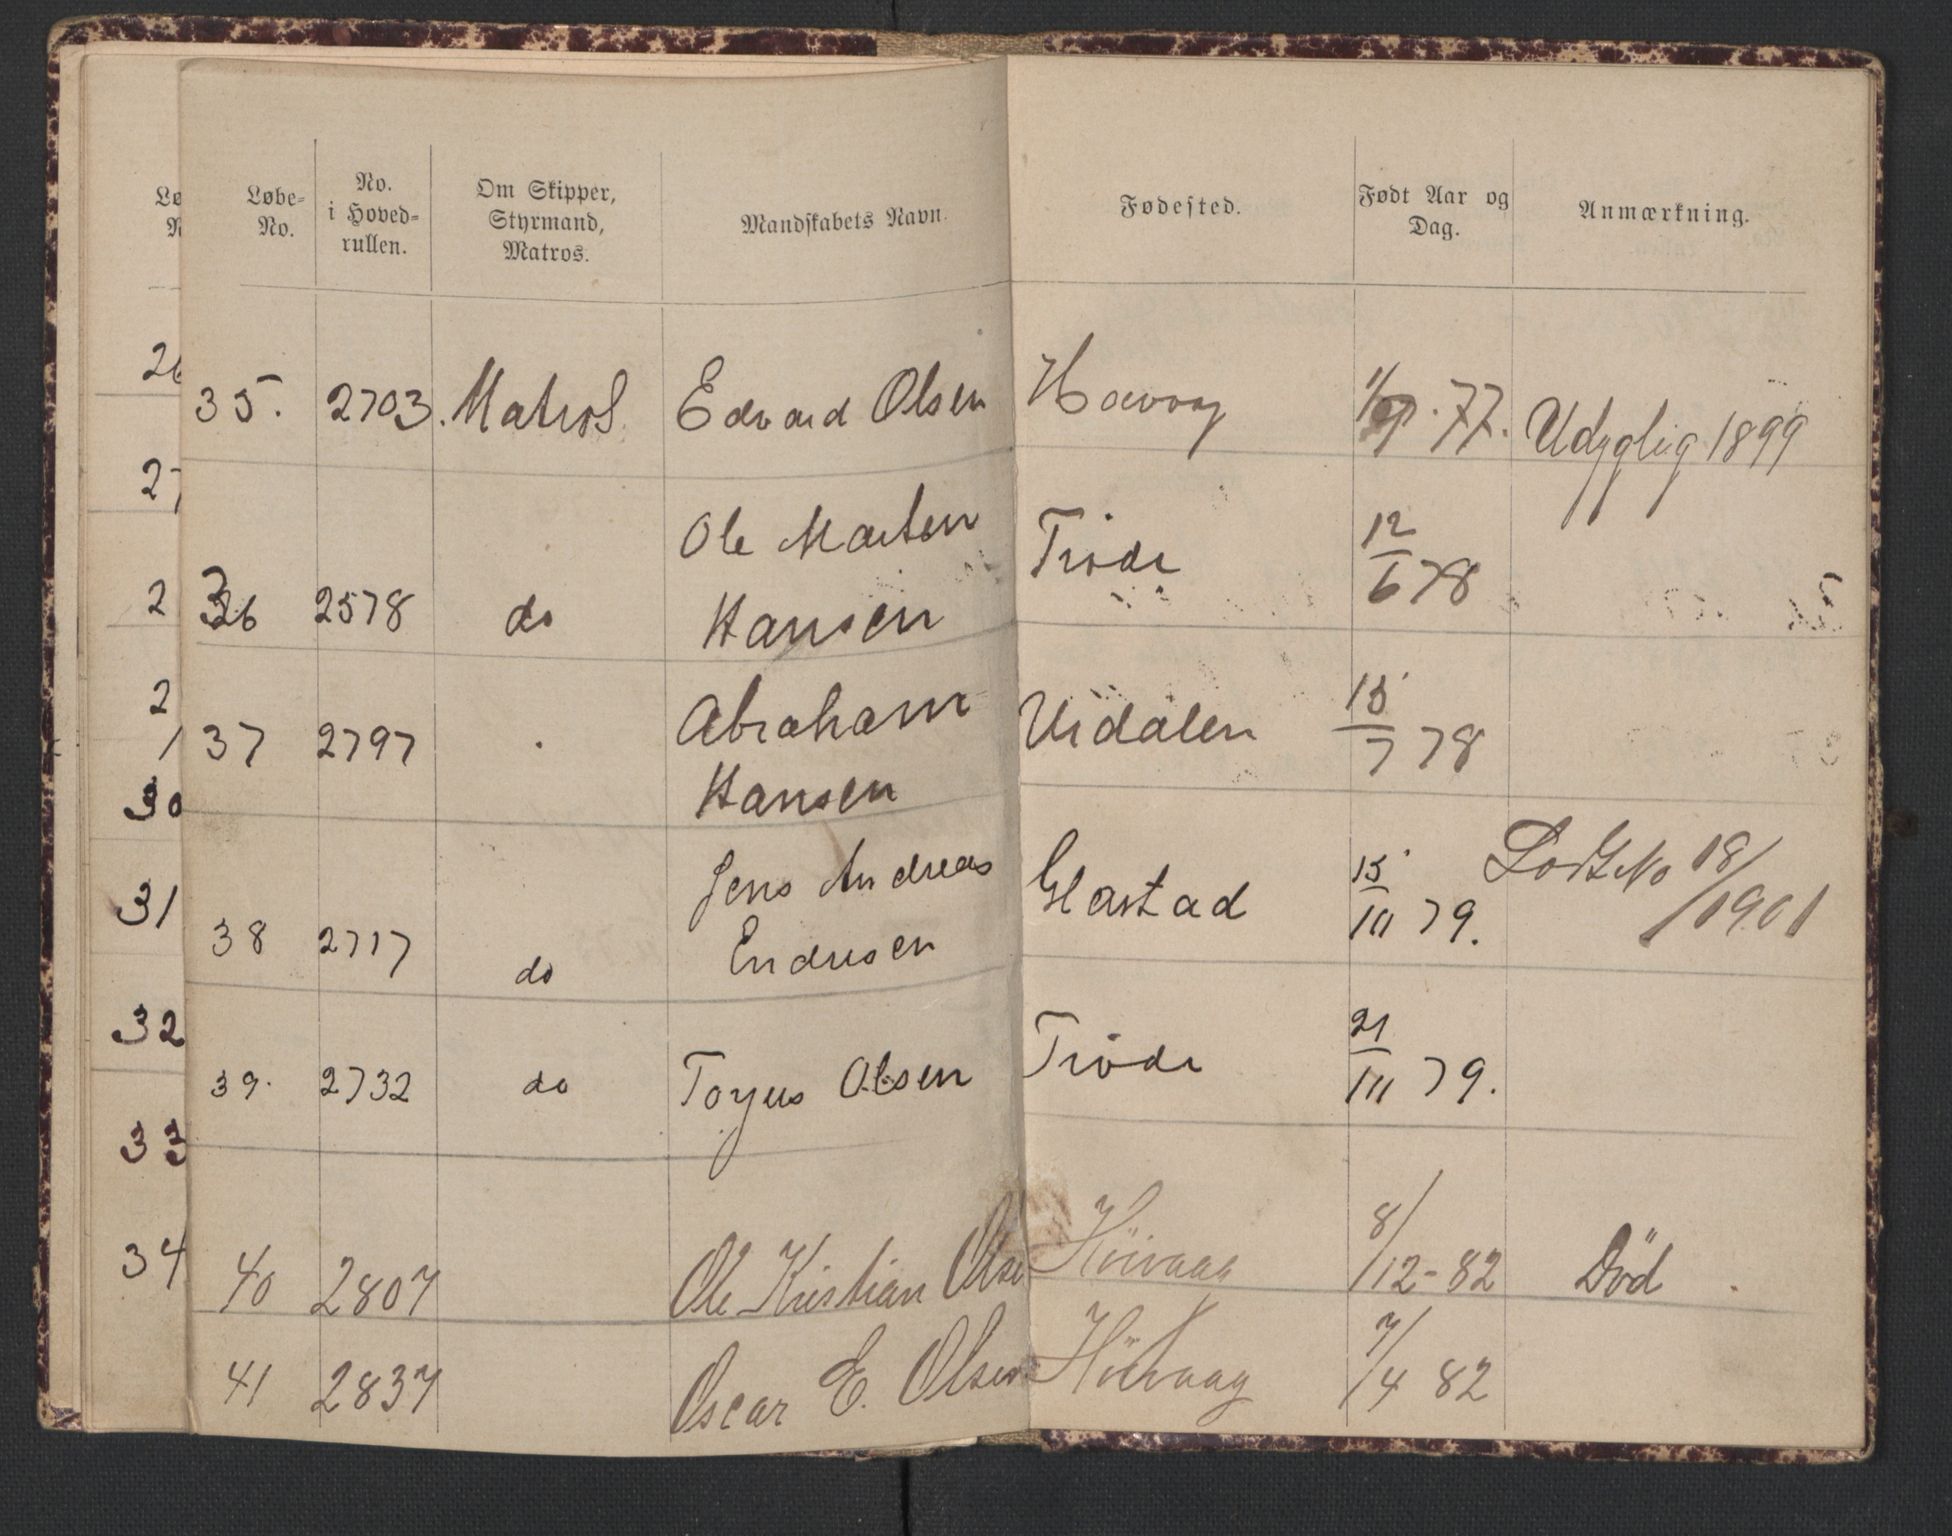 Løbe-
No.
No.
i Hoved-
rullen.
Om Skipper,
Styrmand,
Matros.
Mandskabets Navn.
Fødested.
Født Aar og
Dag.
Anmærkning.
35. 2703. Matros Edvard Olsen Høvaag 1/9. 77. Udygtig 1899
36 2578 do Ole Martin
Hansen Trøde 12/6 78
37 2797 Abraham
Hansen Urdalen 15/7 78
38 2717 do Jens Andreas
Endresen Glastad 15/10 79. Lods No 18/1901
39. 2732 do Torjus Olsen Trøde 21/10 79.
40 2807 Ole Kristian Olse Hövaag 8/12-82 Död
41 2837 Oscar E. Olsen Hövaag 7/4 82
26
27
2
2
1
30
31
32
33
34